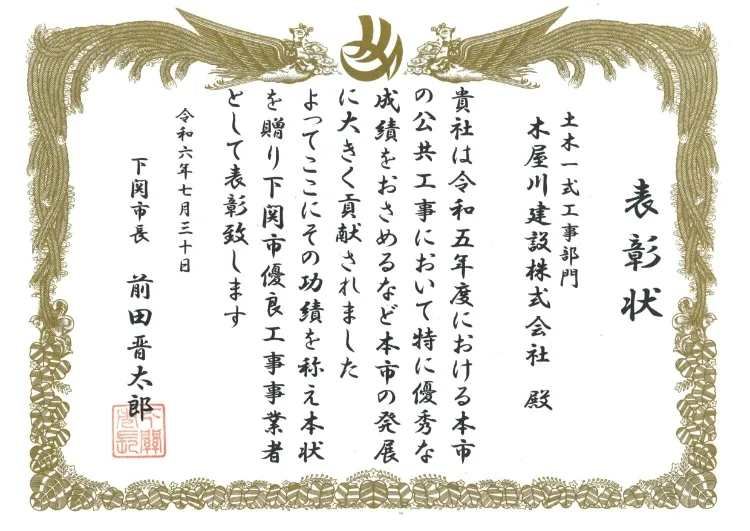 表彰状
土木一式工事部門
木屋川建設株式会社 殿
貴社は令和五年度における本市
の公共工事において特に優秀な
成績をおさめるなど本市の発展
に大きく貢献されました
よってここにその功績を称え本状
を贈り下関市優良工事事業者
として表彰致します
令和六年七月三十日
下関市長 前田晋太郎